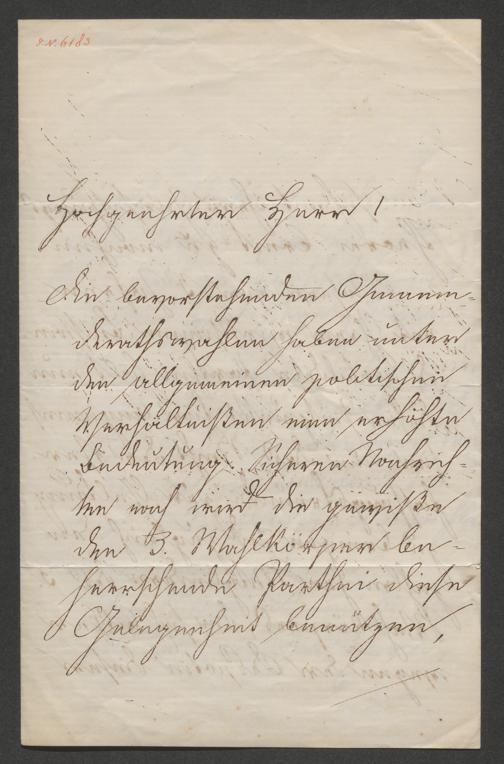 I.N. 6183
Hochgeehrter Herr!
Die bevorstehenden Gemein-
derathswahlen haben unter
den allgemeinen politischen
Verhältnißen eine erhöhte
Bedeutung. Sicheren Nachrich-
ten nach wird die gewiße
den 3. Wahlkörper be-
herrschende Parthei diese
Gelegenheit benützen,